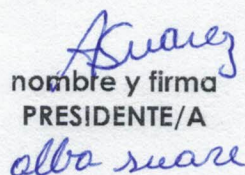 ASuarez
nombre y firma
PRESIDENTE/A
alba suare